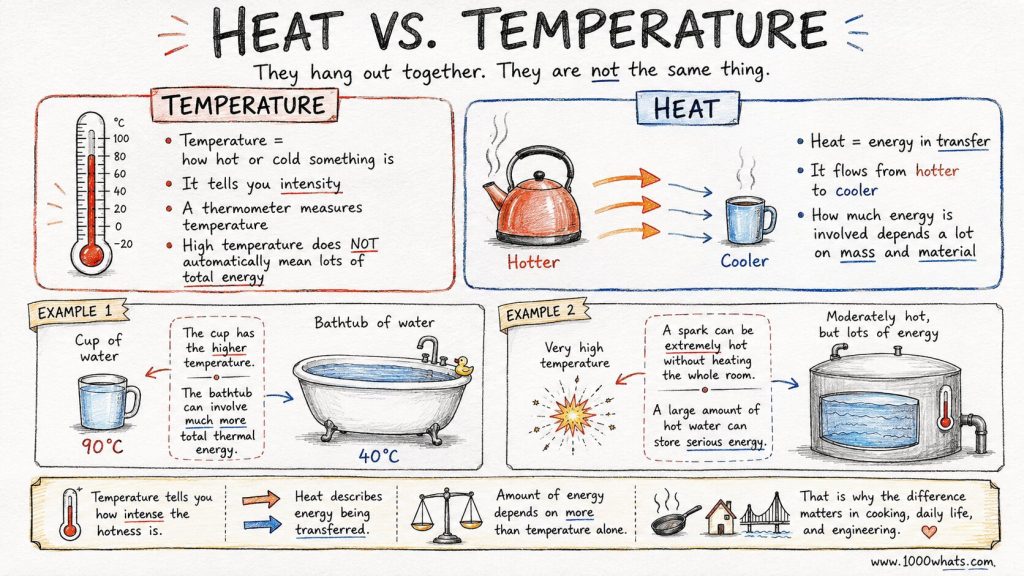 HEAT VS. TEMPERATURE
They hang out together. They are not the same thing.
TEMPERATURE
°C
100
80
60
40
20
0
-20
• Temperature =
how hot or cold something is
• It tells you intensity
• A thermometer measures
temperature
• High temperature does NOT
automatically mean lots of
total energy
HEAT
Hotter
Cooler
• Heat = energy in transfer
• It flows from hotter
to cooler
• How much energy is
involved depends a lot
on mass and material
EXAMPLE 1
Cup of
water
90°C
The cup has
the higher
temperature.
The bathtub
can involve
much more
total thermal
energy.
Bathtub of water
40°C
EXAMPLE 2
Very high
temperature
A spark can be
extremely hot
without heating
the whole room.
A large amount of
hot water can
store serious energy.
Moderately hot,
but lots of energy
Temperature tells you
how intense the
hotness is.
Heat describes
energy being
transferred.
Amount of energy
depends on more
than temperature alone.
That is why the difference
matters in cooking, daily life,
and engineering.
www.1000whats.com